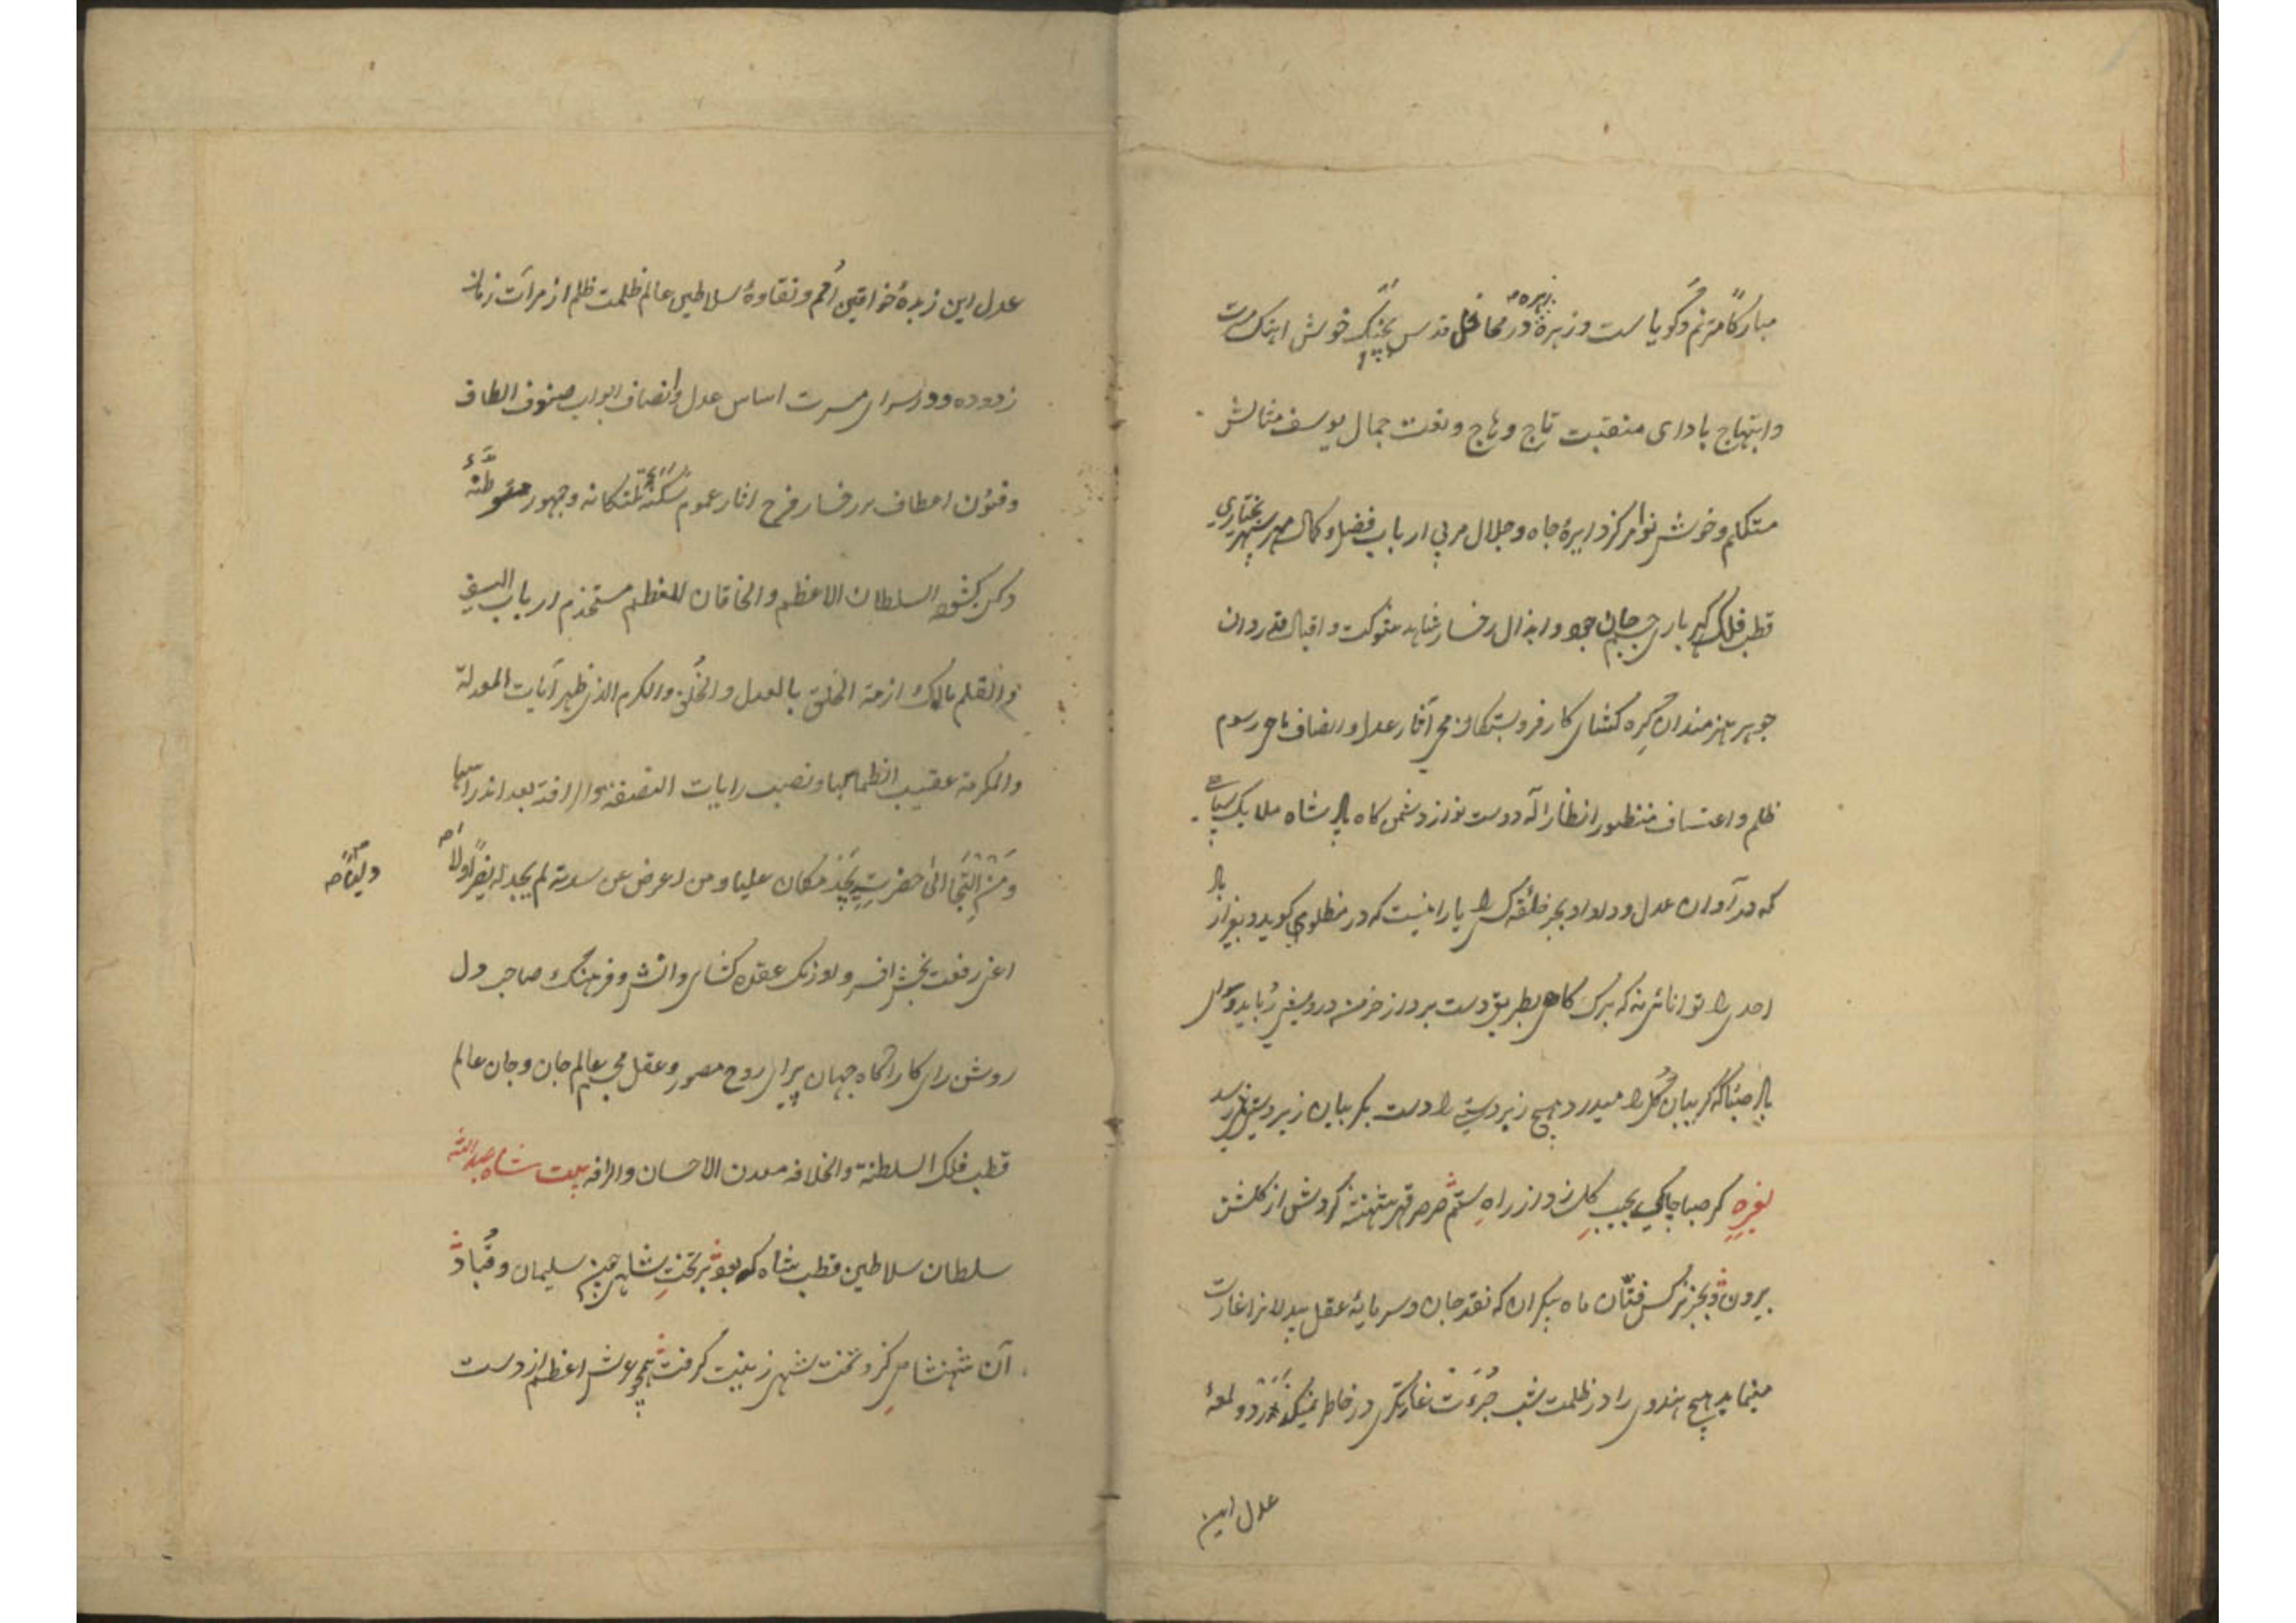 مبارکا مترنم و گویاست و زهره در محافل قدس بچنگ خوش آهنک
زهره
وابتهاج بادای منقبت تاج وهاج و نعت جمال یوسف مثالش
متکلم و خوش نوا مرکز دایرهٔ جاه و جلال مربی ارباب فضل و کمال مهر سپهر بختیاری
قطب فلک بارى جسم جان جود و ابذال رخسار شاهد شوکت و اقبال قدردان
جوهر هنرمندان گره کشای کار فروبستکان محی آثار عدل و انصاف ماحی رسوم
ظلم و اعتساف منظور انظار آله دوست نواز دشمن کاه پادشاه ملایک سپاهی
که در آوان عدل و داد او بجز را یارا نیست که در مظلومی کوید و بغیر از
احدی را توانائی نه که برک کاهی بطریق دست برد از خرمن درویشی رباید و سوای
صبا که گریبان گل را میدرد هیچ زبردستی را دست بگریبان زیردستی نمیرسد
گر صبا چاکی بجیب گل زد از راه ستم صرصر قهر شهنشه کردش از کلشن
برون و بجز نرکس فتان ماه پیکران که نقد جان و سرمایهٔ عقل بیدلانرا غارت
مینماید هیچ هندوی را در ظلمت شب جرءت غارتگری در خاطر نمیگذرد و لمعهٔ
عدل این
عدل این زبدهٔ خواقین امم و نقاوهٔ سلاطین عالم ظلمت ظلم از مرآت زمانه
زدوده و در سرای مسرت اساس عدل و انصاف ابواب صنوف الطاف
و فنون اعطاف بر رخسار فرح اثار عموم سکنهٔ تلنکانه و جمهور متوطنهٔ
دکن کشوده السلطان الاعظم والخاقان المعظم مستخدم ارباب السیف
والقلم مالک ازمة الخلق بالعدل والخلق والکرم الذی ظهر آیات المعدلة
والمکرمة عقیب انطماسها و نصب رایات النصفة والرافة بعد اندراسها
ومن التجا الی حضرته یجد مکان علیا و من اعرض عن سدته لم یجد له نصیرا ولا
ولیا
اعنی رفعت بخش افسر و اورنک عقده کشای دانش و فرهنک صاحب دل
روشن رای کار اگاه جهان پیرای روح مصور و عقل مجسم عالم جان و جان عالم
قطب فلک السلطنة والخلافه معدن الاحسان والرافه بیت شاه عبدالله
سلطان سلاطین قطب شاه که بود بر تخت شاهی جم سلیمان و قباد
آن شهنشاهی کزو تخت شهی زینت گرفت همچو عرش اعظم از دست